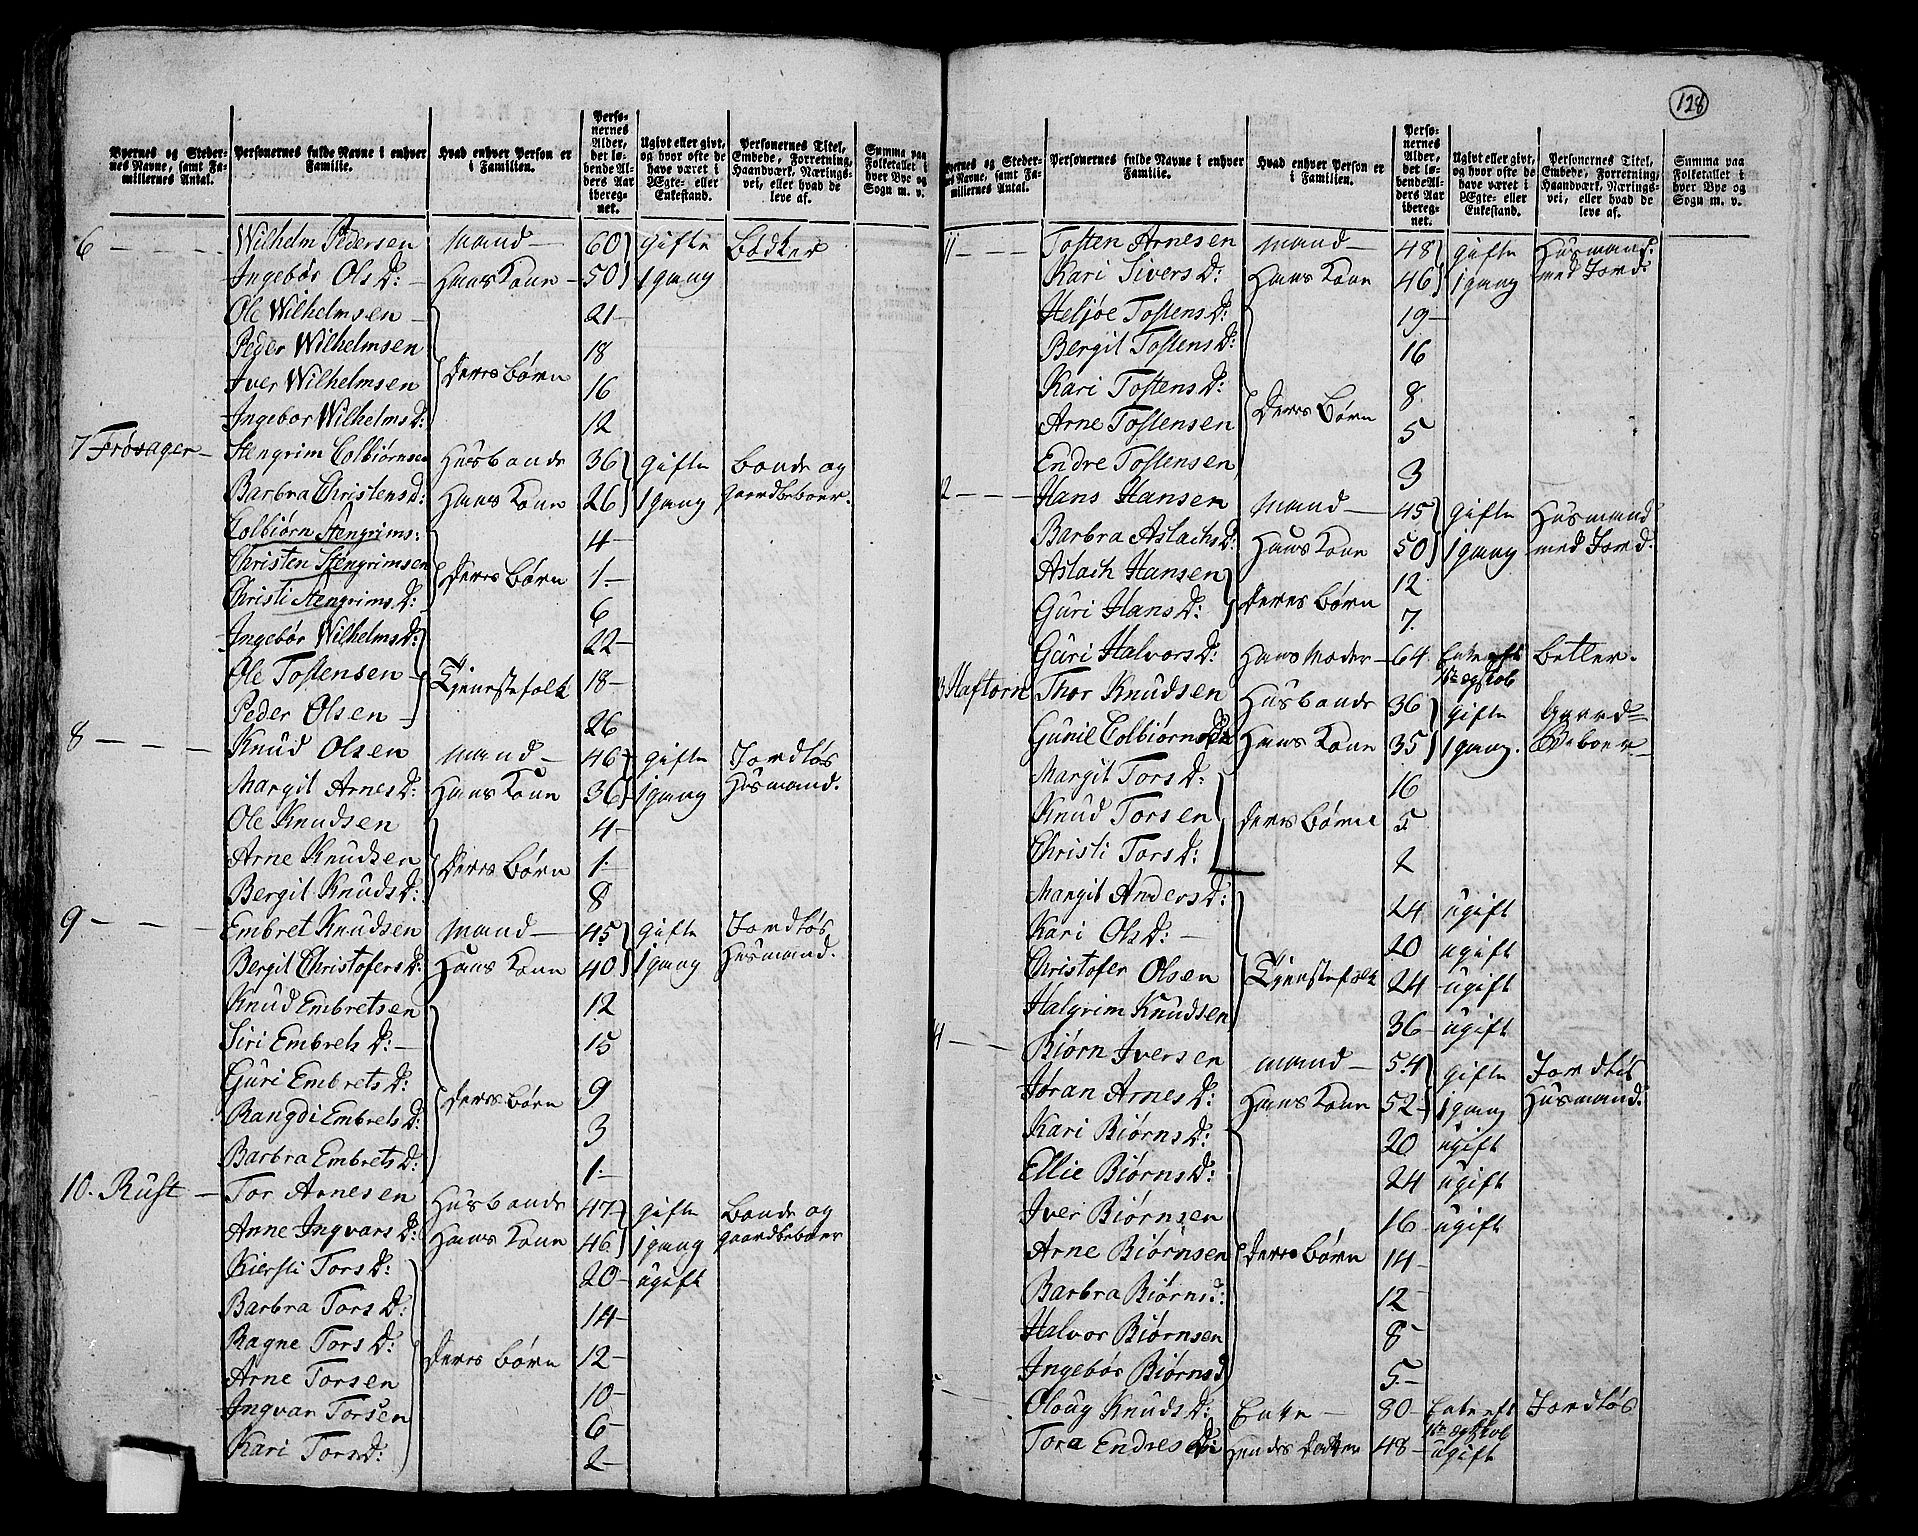 128
Byernes og Stedernes Navne, samt Familiernes Antal. Personernes fulde Navne i enhver Familie. Hvad enhver Person er i Familien. Personernes Alder, det løbende Alders Aar iberegnet. Ugivt eller givt, og hvor ofte de have været i Ægte- eller Enkestand. Personernes Titel, Embede, Forretning, Haandværk, Næringsvei, eller hvad de leve af. Summa paa Folketallet i hver Bye og Sogn m. v.
6 Wilhelm Pedersen Mand 60 gifte Bødker
Ingebor Ols D: Hans Kone 50 1 gang
Ole Wilhelmsen 21
Peder Wilhelmsen 18
Iver Wilhelmsen Deres Børn 16
Ingebor Wilhelms D: 12
7 Frøsager Stengrim Colbiørnsen Husbonde 36 gifte Bonde og
Barbra Christens D: Hans Kone 26 1 gang gaardbeboer.
Colbiørn Stengrims: 4
Christen Stengrimsen Deres Børn 1
Christi Stengrims D: 6
Ingebor Wilhelms D: 22
Ole Tostensen Tjenestefolk 18
Peder Olsen 26
8 Knud Olsen Mand 46 gifte Jordløs
Margit Arnes D: Hans Kone 36 1 gang Husmand.
Ole Knudsen 4
Arne Knudsen Deres Børn 1
Bergit Knuds D: 8
9 Embret Knudsen Mand 45 gifte Jordløs
Bergit Christofers D: Hans Kone 40 1 gang Husmand.
Knud Embretsen 12
Siri Embrets D: 15
Guri Embrets D: Deres Børn 9
Rangdi Embrets D: 3
Barbra Embrets D: 1
10. Rust Tor Arnesen Husbonde 47 gifte Bonde og
Anne Ingvars D: Hans Kone 46 1 gang gaardbeboer
Kiersti Tors D: 20 ugift
Barbra Tors D: 14
Ragne Tors D: Deres Børn 12
Arne Torsen 10
Ingvar Torsen 6
Kari Tors D: 2
Byernes og Stedernes Navne, samt Familiernes Antal. Personernes fulde Navne i enhver Familie. Hvad enhver Person er i Familien. Personernes Alder, det løbende Alders Aar iberegnet. Ugivt eller givt, og hvor ofte de have været i Ægte- eller Enkestand. Personernes Titel, Embede, Forretning, Haandværk, Næringsvei, eller hvad de leve af. Summa paa Folketallet i hver Bye og Sogn m. v.
11 Tosten Arnesen Mand 48 gifte Husmand
Kari Sivers D: Hans Kone 46 1 gang med Jord.
Heljøe Tostens D: 19
Bergit Tostens D: 16
Kari Tostens D: 8
Arne Tostensen Deres Børn 5
Endre Tostensen 3
2 Hans Hansen Mand 45 gifte Husmand
Barbra Aslachs D: Hans Kone 50 1 gang med Jord.
Aslach Hansen 12
Guri Hans D: Deres Børn 7.
Guri Halvors D: Hans Moder 64 Enke eft 1te Ægteskab Betler.
3 Haftorn Thor Knudsen Husbonde 36 gifte Gaard
Gunil Colbiørns D: Hans Kone 35 1 gang. Beboer
Margit Tors D: 16
Knud Torsen Deres Børn 5
Christi Tors D: 2
Margit Anders D: 24 ugift
Kari Ols D: 20 ugift
Christofer Olsen Tjenestefolk 24 ugift
Halgrim Knudsen 36 ugift
4 Biørn Iversen Mand 54 gifte Jordløs
Jøran Arnes D: Hans Kone 52 1 gang Husmand.
Kari Biørns D: 20 ugift
Ellie Biørns D: 24 ugift
Iver Biørnsen 16 ugift
Arne Biørnsen Deres Børn 14
Barbra Biørns D: 12
Halvor Biørnsen 8
Ingebor Biørns D 5
Oloug Knuds D: Enke 80 Enke eft 1te Ægteskab Jordløs
Tora Endres D: Hendes Datter 48 ugift